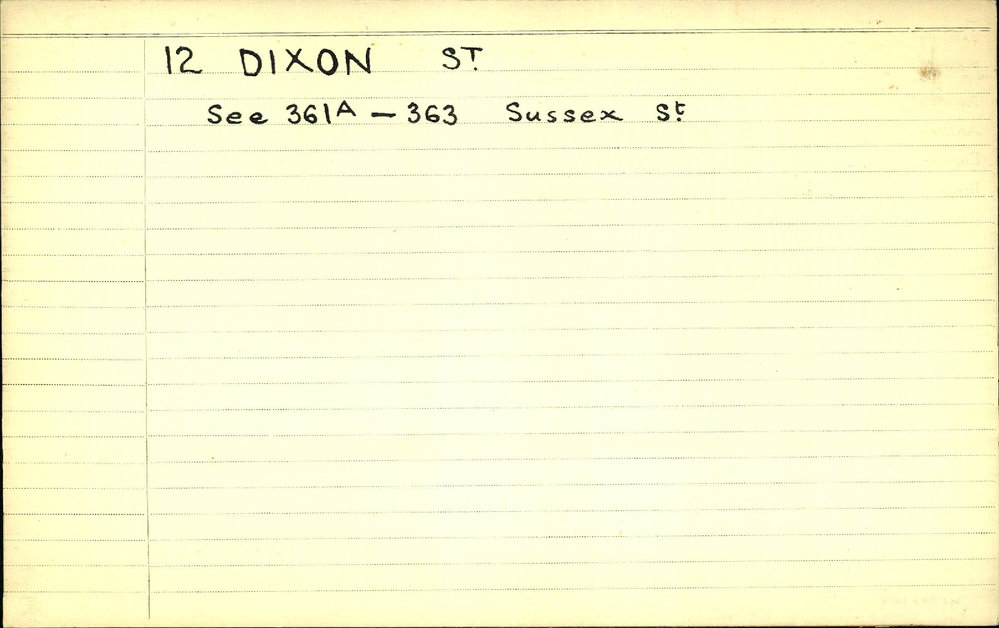 12 DIXON ST.
See 361A - 363 Sussex St.